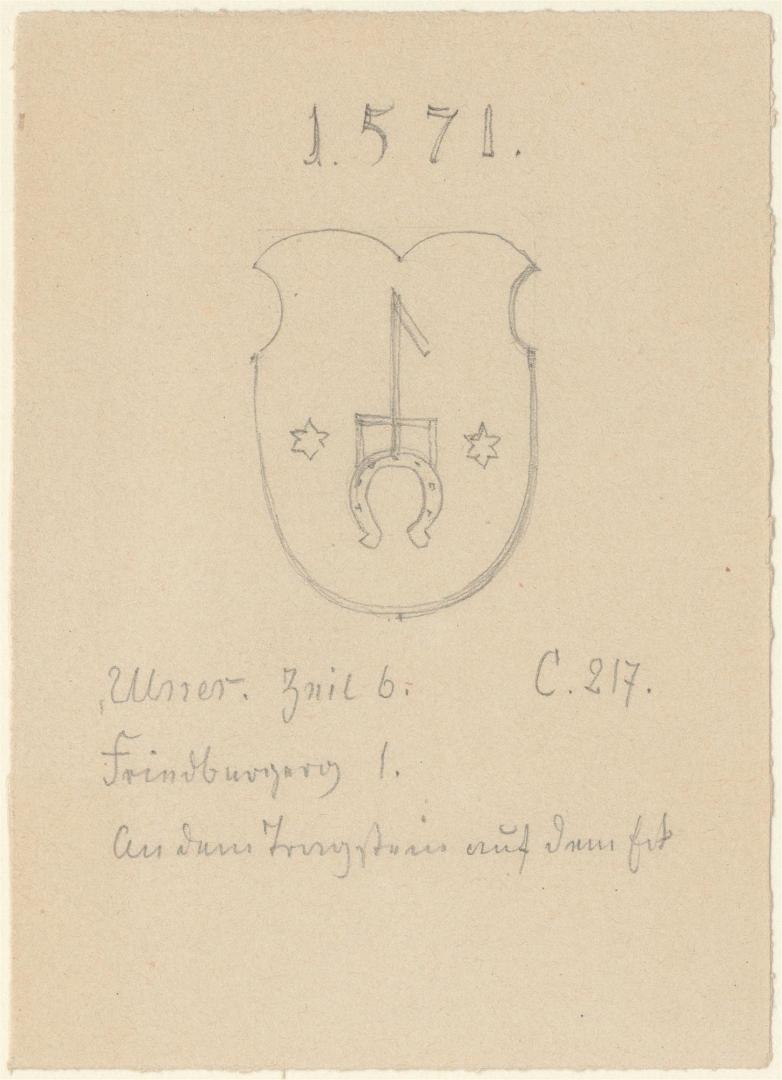 1571.
Zeil 6. C. 217.
Friedbergerg 1.
An dem Tragstein auf dem Eck